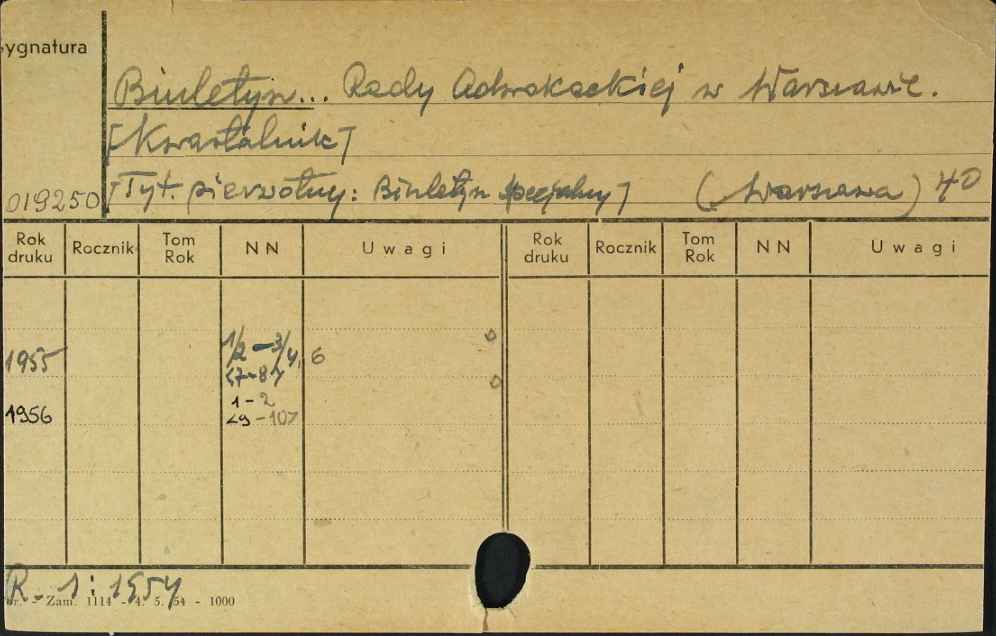 Sygnatura
Biuletyn... Rady Adwokackiej w Warszawie.
[Kwartalnik]
019250 [Tyt. pierwotny: Biuletyn specjalny] (Warszawa) 40
Rok druku Rocznik Tom Rok NN Uwagi Rok druku Rocznik Tom Rok NN Uwagi
1955 1/2-3/4, 6
<7-8>
1956 1-2
<9-10>
R. 1: 1954
Zam. 1114 - 4. 5. 54 - 1000